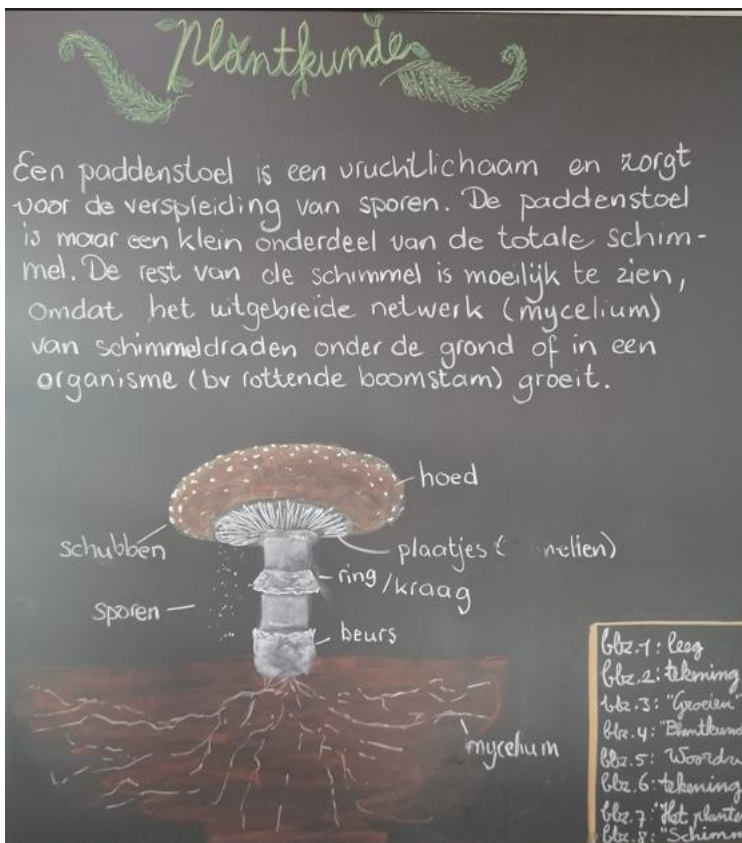 Plantkunde
Een paddenstoel is een vruchtlichaam en zorgt
voor de verspreiding van sporen. De paddenstoel
is maar een klein onderdeel van de totale schim-
mel. De rest van de schimmel is moeilijk te zien,
omdat het uitgebreide netwerk (mycelium)
van schimmeldraden onder de grond of in een
organisme (bv rottende boomstam) groeit.
hoed
schubben
plaatjes (
ring/kraag
sporen
beurs
mycelium
blz.1: leeg
blz.2: tekening
blz.3: "Groeien"
blz.4:
blz.5:
blz.6: tekening
blz.7: "Het
blz.8: